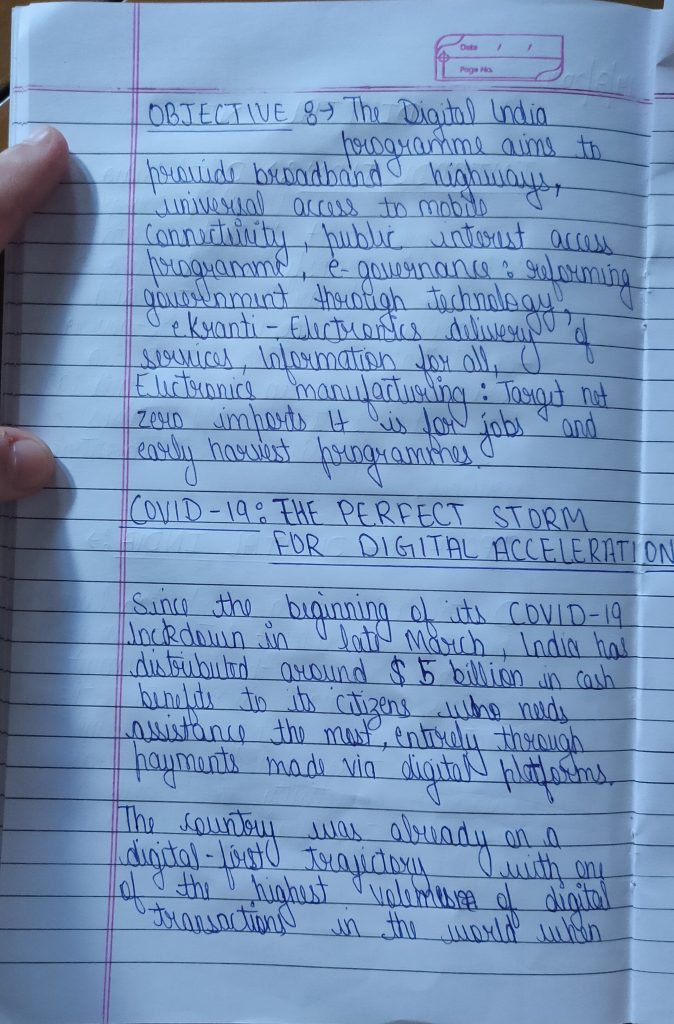 Date / /
Page No.
OBJECTIVE :→ The Digital India
programme aims to
provide broadband highways,
universal access to mobile
connectivity, public interest access
programme, e-governance: reforming
government through technology,
eKranti - Electronics delivery of
services, Information for all,
Electronics manufacturing: Target net
zero imports It is for jobs and
early harvest programmes.
COVID-19: THE PERFECT STORM
FOR DIGITAL ACCELERATION
Since the beginning of its COVID-19
lockdown in late March, India has
distributed around $5 billion in cash
benefits to its citizens who needs
assistance the most, entirely through
payments made via digital platforms.
The country was already on a
digital-first trajectory with one
of the highest volumes of digital
transactions in the world when